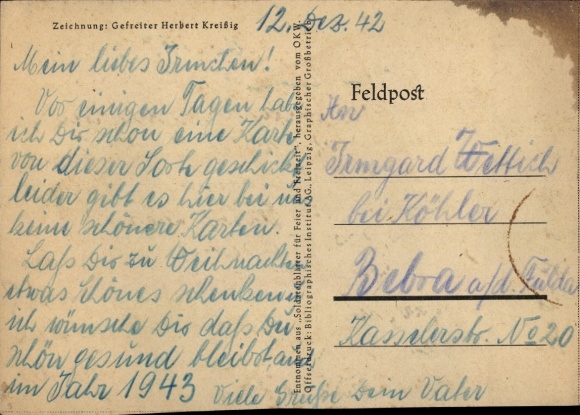 Zeichnung: Gefreiter Herbert Kreißig
12. Dez. 42
Mein liebes Irmchen!
Vor einigen Tagen habe
ich Dir schon eine Karte
von dieser Sorte geschickt
leider gibt es hier bei uns
keine schönere Karten.
Laß Dir zu Weihnachten
etwas schönes schenken u.
ich wünsche Dir daß Du
schön gesund bleibst auch
im Jahr 1943 Viele Grüße Dein Vater
Entnommen aus „Soldatenblätter für Feier und Freizeit", herausgegeben vom OKW.
Offsetdruck: Bibliographisches Institut AG., Leipzig, Graphischer Großbetrieb
Feldpost
An
Irmgard Wettich
bei Köhler
Bebra a/d. Fulda
Kasselerstr. No 20